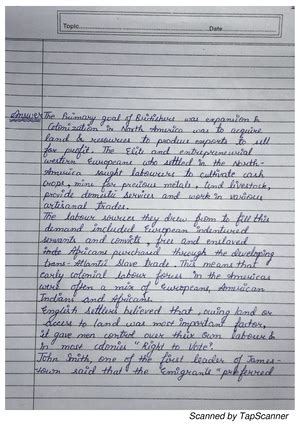 Topic
Date
Answer The Primary goal of Britishers was expansion &
Colonization in North America was to acquire
land & resources to produce exports to sell
for profit. The Elite and entrepreneurial
western Europeans who settled in the North-
America sought labourers to cultivate cash
crops, mine for precious metals, tend livestock,
provide domestic services and work in various
artisanal trades.
The labour sources they drew from to fill this
demand included European indentured
servants and convicts, free and enslaved
Africans purchased through the developing
trans-Atlantic Slave Trade. This meant that
early colonial labour forces in the Americas
were often a mix of Europeans, American
Indians and Africans.
English settlers believed that, owing land or
access to land was most important factor,
it gave men control over their own labour &
in most colonies "Right to Vote".
John Smith, one of the first leader of James-
town said that the "Emigrants" preferred
Scanned by TapScanner